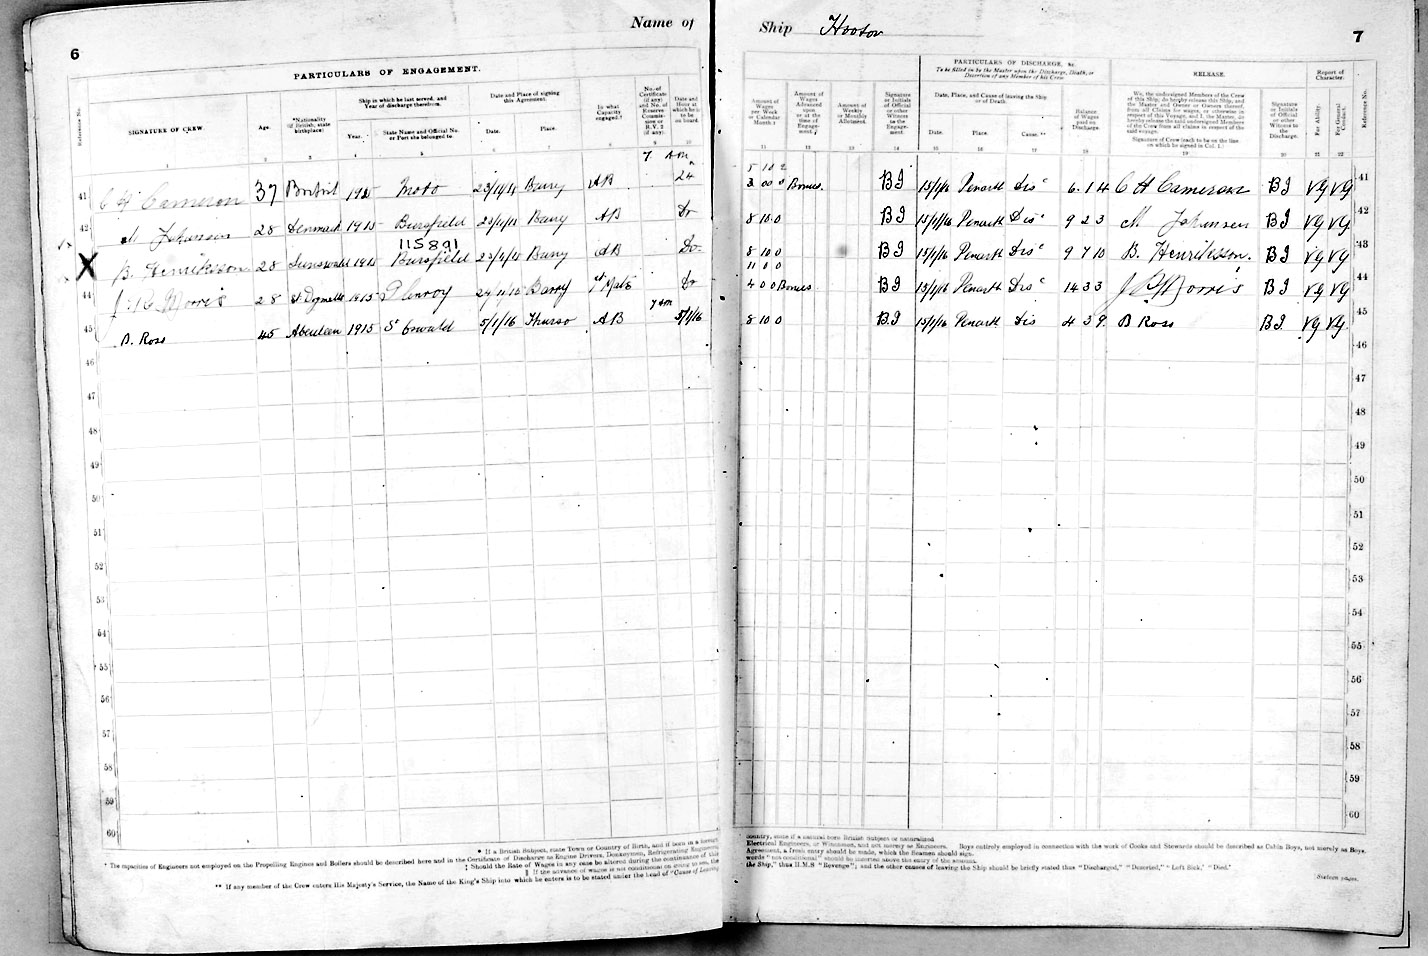 6
Name of
PARTICULARS OF ENGAGEMENT.
Reference No.
SIGNATURE OF CREW.
Age.
*Nationality (if British, state birthplace).
Ship in which he last served, and Year of discharge therefrom.
Year.
State Name and Official No. or Port she belonged to.
Date and Place of signing this Agreement.
Date.
Place.
In what Capacity engaged.
No. of Certificate (if any) and No. of Reserve Commission or R.V. 2 (if any).
Date and Hour at which he is to be on board.
1 2 3 4 5 6 7 8 9 10
7 AM
41 C H Cameron 37 Bristol 1915 Moto 23/11/15 Barry AB 24
42 M Johansen 28 Denmark 1915 Bursfield 23/11/15 Barry AB Do
115891
X B. Henriksson 28 1915 Bursfield 23/11/15 Barry AB Do
44 J. Morris 28 St Dogmells 1915 Glenroy 24/11/15 Barry 1st Mate Do
7 am
45 D. Ross 45 Aberdeen 1915 St Oswald 5/1/16 Thurso AB 5/1/16
46
47
48
49
50
51
52
53
54
55
56
57
58
59
60
* If a British Subject, state Town or Country of Birth, and if born in a foreign
* The capacities of Engineers not employed on the Propelling Engines and Boilers should be described here and in the Certificate of Discharge as Engine Drivers, Donkeymen, Refrigerating Engineers,
‡ Should the Rate of Wages in any case be altered during the continuance of this
|| If the advance of wages is not conditional on going to sea, the
** If any member of the Crew enters His Majesty's Service, the Name of the King's Ship into which he enters is to be stated under the head of "Cause of Leaving
Ship Hooton
7
PARTICULARS OF DISCHARGE, &c.
To be filled in by the Master upon the Discharge, Death, or Desertion of any Member of his Crew.
RELEASE.
Report of Character.
Amount of Wages per Week or Calendar Month.‡
Amount of Wages Advanced upon or at the time of Engagement.||
Amount of Weekly or Monthly Allotment.
Signature or Initials of Official or other Witness to the Engagement.
Date, Place, and Cause of leaving the Ship or of Death.
Date.
Place.
Cause.**
Balance of Wages paid on Discharge.
We, the undersigned Members of the Crew of this Ship, do hereby release this Ship, and the Master and Owner or Owners thereof, from all Claims for wages, or otherwise in respect of this Voyage, and I, the Master, do hereby release the undersigned Members of the Crew from all claims in respect of the said voyage.
Signature of Crew (each to be on the line on which he signed in Col. 1.)
Signature or Initials of Official or other Witness to the Discharge.
For Ability.
For General Conduct.
Reference No.
11 12 13 14 15 16 17 18 19 20 21 22
5 10
3 00 0 Bonus BJ 15/1/16 Penarth Disc 6.14 C H Cameron BJ VG VG 41
8 10 0 BJ 15/1/16 Penarth Disc 9 2 3 M Johansen BJ VG VG 42
8 10 0 BJ 15/1/16 Penarth Disc 9 7 10 B. Henriksson. BJ VG VG 43
11 0 0
4 0 0 Bonus BJ 15/1/16 Penarth Disc 14 3 3 J Morris BJ VG VG 44
8 10 0 BJ 15/1/16 Penarth Dis 4 3 9 D Ross BJ VG VG 45
46
47
48
49
50
51
52
53
54
55
56
57
58
59
60
country, state if a natural born British Subject or naturalized
Electrical Engineers, or Winchmen, and not merely as Engineers. Boys entirely employed in connection with the work of Cooks and Stewards should be described as Cabin Boys, not merely as Boys.
Agreement, a fresh entry should be made, which the Seamen should sign.
words "not conditional" should be inserted above the entry of the amount.
the Ship," thus H.M.S "Revenge"; and the other causes of leaving the Ship should be briefly stated thus "Discharged," "Deserted," "Left Sick," "Died."
Sixteen pages.